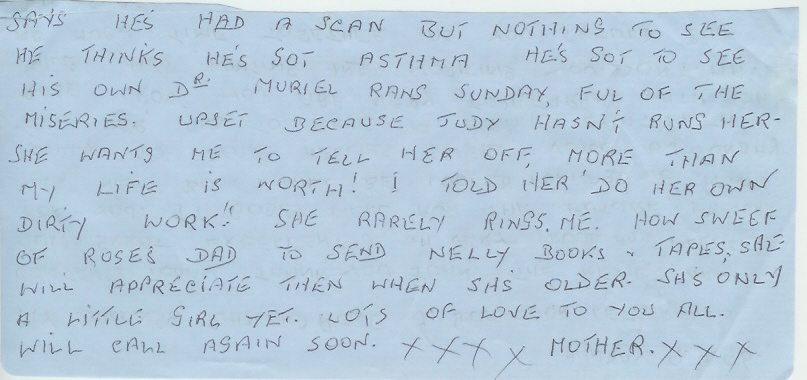 SAYS HE'S HAD A SCAN BUT NOTHING TO SEE
HE THINKS HE'S SOT ASTHMA HE'S SOT TO SEE
HIS OWN DR. MURIEL RANS SUNDAY, FUL OF THE
MISERIES. UPSET BECAUSE JUDY HASN'T RUNS HER-
SHE WANTS ME TO TELL HER OFF, MORE THAN
MY LIFE IS WORTH! I TOLD HER 'DO HER OWN
DIRTY WORK!' SHE RARELY RINGS. ME. HOW SWEET
OF ROSE'S DAD TO SEND NELLY BOOKS & TAPES, SHE
WILL APPRECIATE THEN WHEN SHS OLDER. SHS ONLY
A LITTLE GIRL YET. LOTS OF LOVE TO YOU ALL.
WILL CALL AGAIN SOON. X X X X MOTHER. X X X